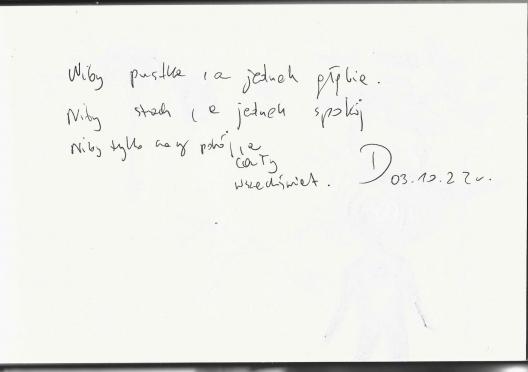 Niby pustka , a jednak głębia.
Niby strach , a jednak spokój
Niby tylko pokój, a
cały
wszechświat.
D 03.10.22r.